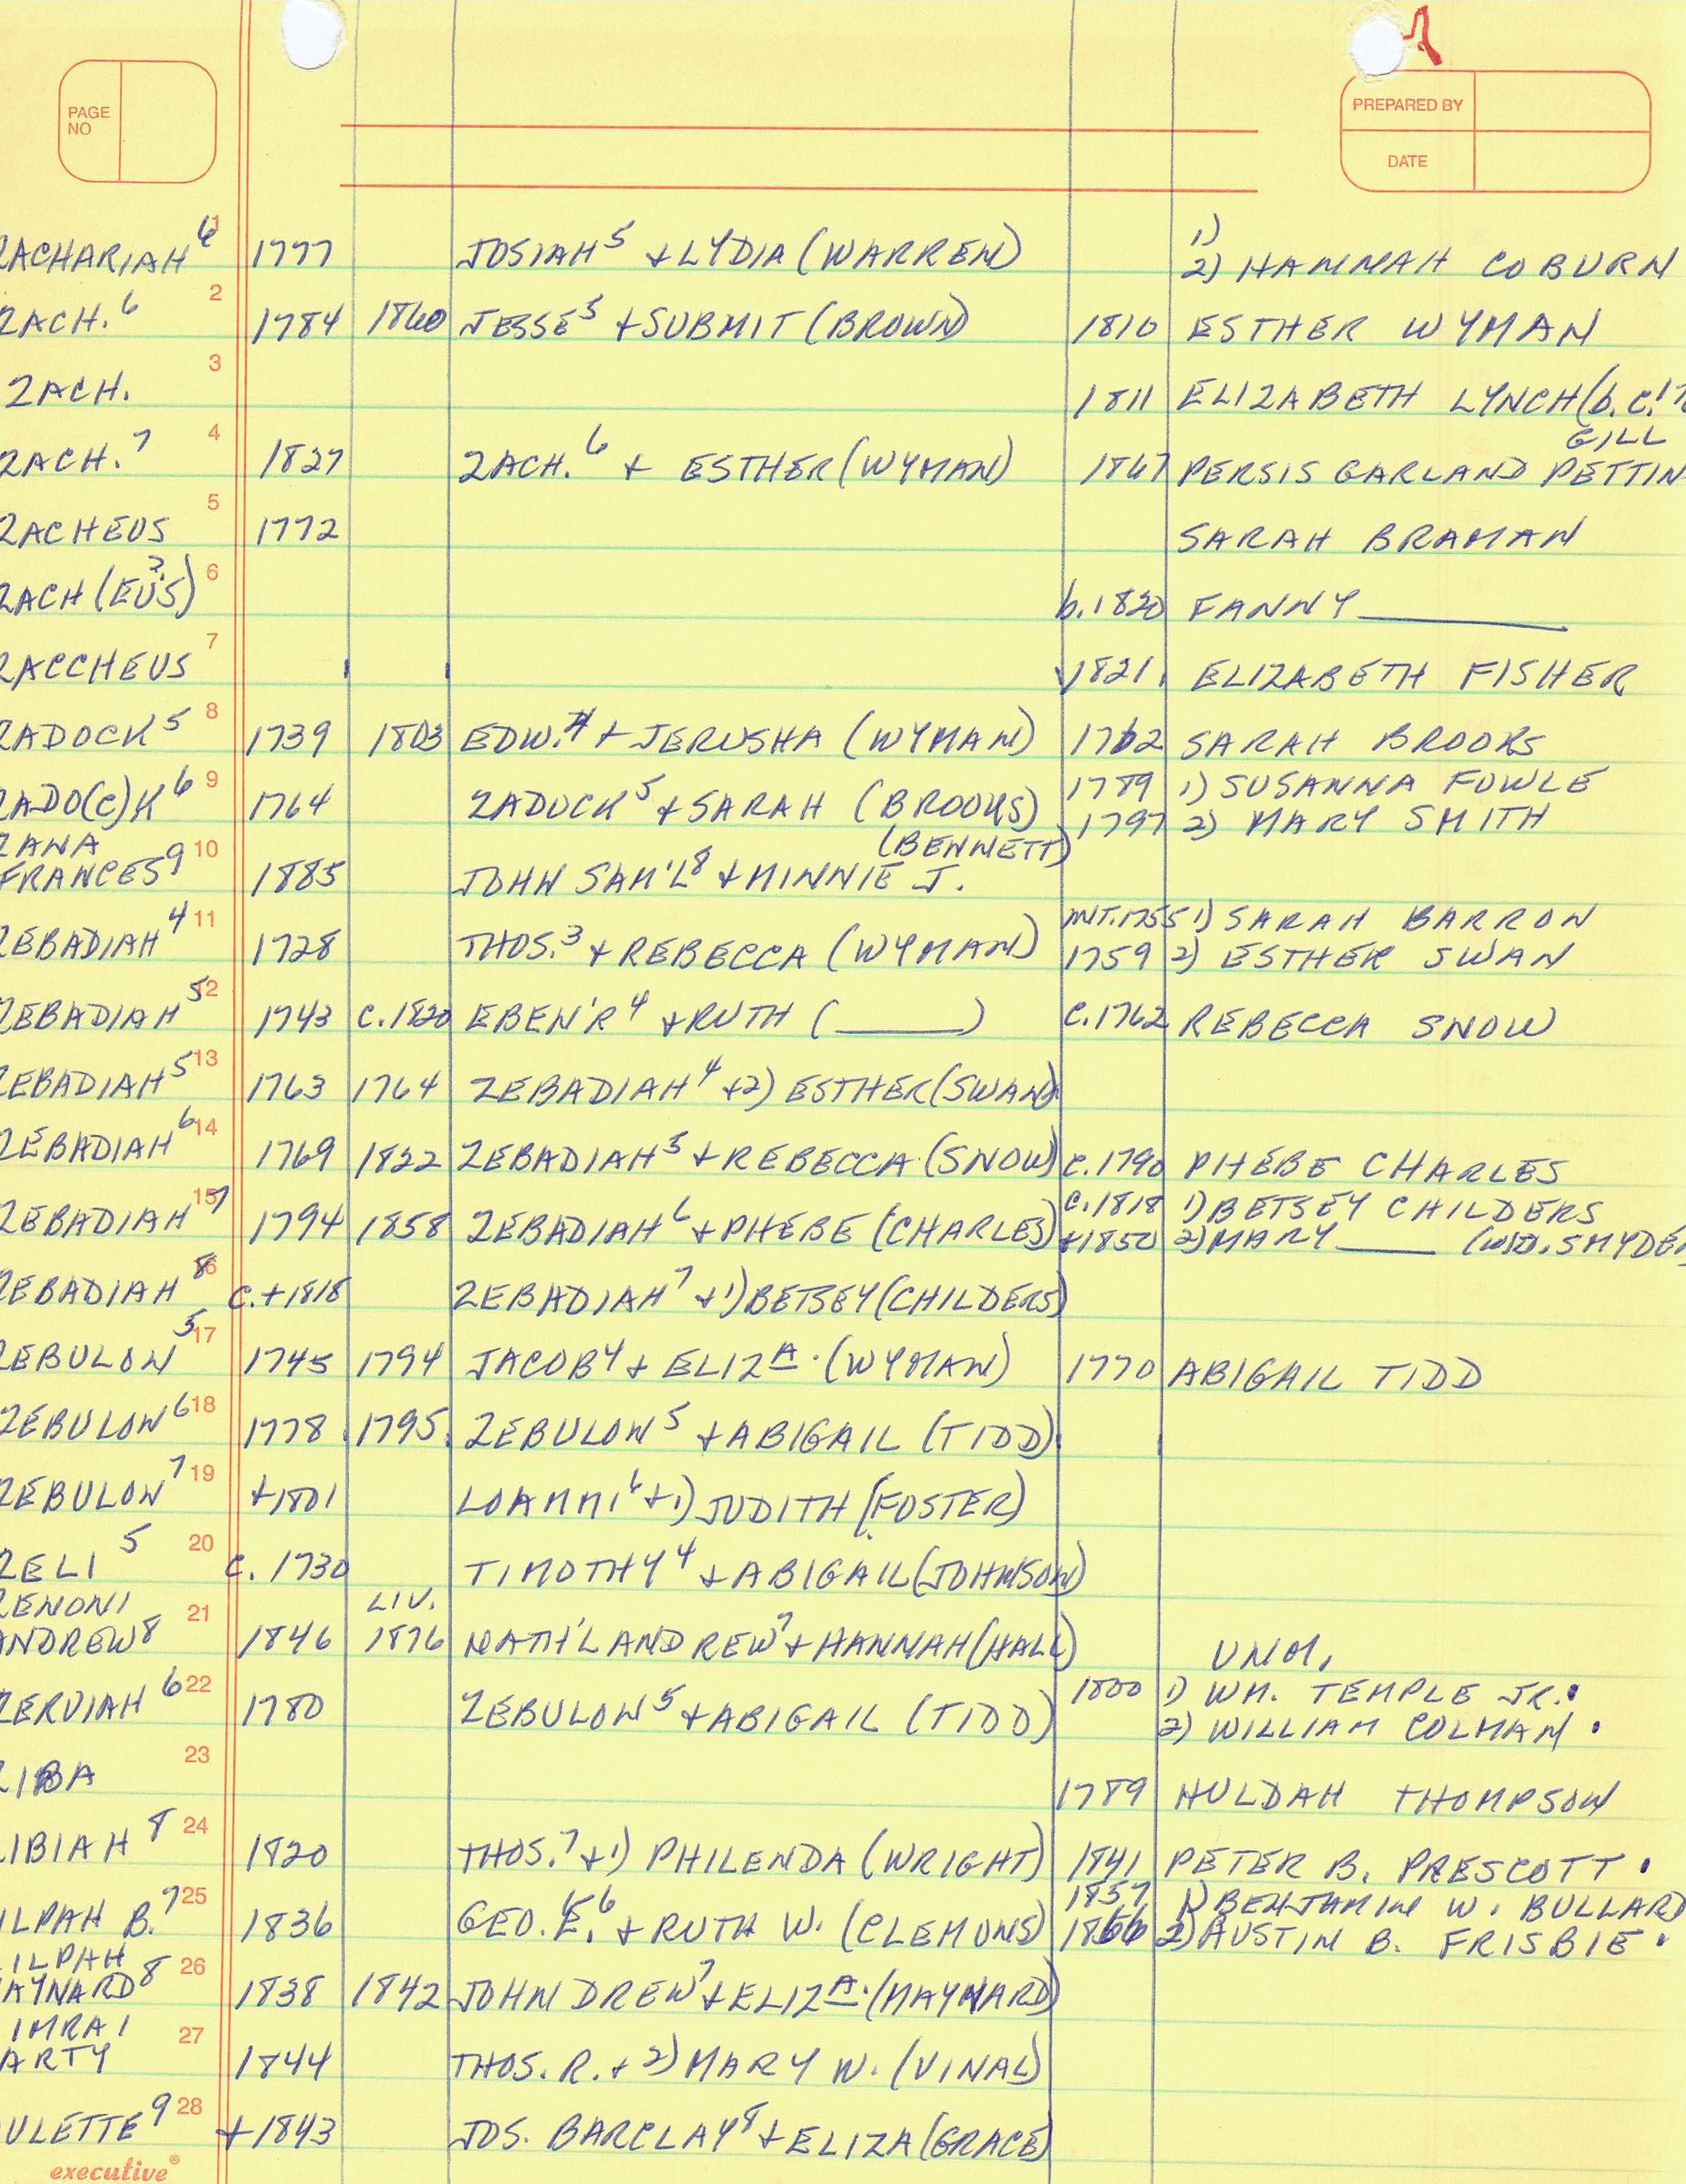 PAGE NO
PREPARED BY
DATE
1 ZACHARIAH 6 1777 JOSIAH 5 + LYDIA (WARREN) 1)
2) HANNAH COBURN
2 ZACH. 6 1784 1860 JESSE 5 + SUBMIT (BROWN) 1810 ESTHER WYMAN
3 ZACH. 1811 ELIZABETH LYNCH (b. c. 17
4 ZACH. 7 1827 ZACH. 6 + ESTHER (WYMAN) 1867 PERSIS GARLAND PETTIN
GILL
5 ZACHEUS 1772 SARAH BRAMAN
6 ZACH (EUS) ? b. 1820 FANNY ______
7 ZACCHEUS 1821 ELIZABETH FISHER
8 ZADOCK 5 1739 1803 EDW. 4 + JERUSHA (WYMAN) 1762 SARAH BROOKS
9 ZADO(C)K 6 1764 ZADOCK 5 + SARAH (BROOKS) 1789 1) SUSANNA FOWLE
1797 2) MARY SMITH
ZANA
10 FRANCES 9 1885 JOHN SAM'L 8 + MINNIE J. (BENNETT)
11 ZEBADIAH 4 1728 THOS. 3 + REBECCA (WYMAN) INT. 1755 1) SARAH BARRON
1759 2) ESTHER SWAN
12 ZEBADIAH 5 1743 C. 1820 EBEN'R 4 + RUTH (______) C. 1762 REBECCA SNOW
13 ZEBADIAH 5 1763 1764 ZEBADIAH 4 + 2) ESTHER (SWAN)
14 ZEBADIAH 6 1769 1822 ZEBADIAH 5 + REBECCA (SNOW) C. 1790 PHEBE CHARLES
15 ZEBADIAH 7 1794 1858 ZEBADIAH 6 + PHEBE (CHARLES) C. 1818 1) BETSEY CHILDERS
+1850 2) MARY ______ (WID. SMYDE
16 ZEBADIAH 8 C. +1818 ZEBADIAH 7 + 1) BETSEY (CHILDERS)
17 ZEBULON 5 1745 1794 JACOB 4 + ELIZA. (WYMAN) 1770 ABIGAIL TIDD
18 ZEBULON 6 1778 1795 ZEBULON 5 + ABIGAIL (TIDD)
19 ZEBULON 7 +1801 LOAMMI 6 + 1) JUDITH (FOSTER)
20 ZELI 5 C. 1730 TIMOTHY 4 + ABIGAIL (JOHNSON)
ZENONI LIV.
21 ANDREW 8 1846 1876 NATH'L ANDREW 7 + HANNAH (HALL) UNM.
22 ZERVIAH 6 1780 ZEBULON 5 + ABIGAIL (TIDD) 1800 1) WM. TEMPLE JR.
2) WILLIAM COLMAN
23 ZIBA 1789 HULDAH THOMPSON
24 IBIAH 8 1820 THOS. 7 + 1) PHILENDA (WRIGHT) 1841 PETER B. PRESCOTT
25 ILPAH B. 7 1836 GEO. E. 6 + RUTH W. (CLEMONS) 1857 1) BENJAMIN W. BULLARD
1866 2) AUSTIN B. FRISBIE
ILPAH
26 AYNARD 8 1838 1842 JOHN DREW 7 + ELIZA. (MAYNARD)
IMRAI
27 ARTY 1844 THOS. R. + 2) MARY W. (VINAL)
28 ULETTE 9 +1843 JOS. BARCLAY 8 + ELIZA (GRACE)
executive®